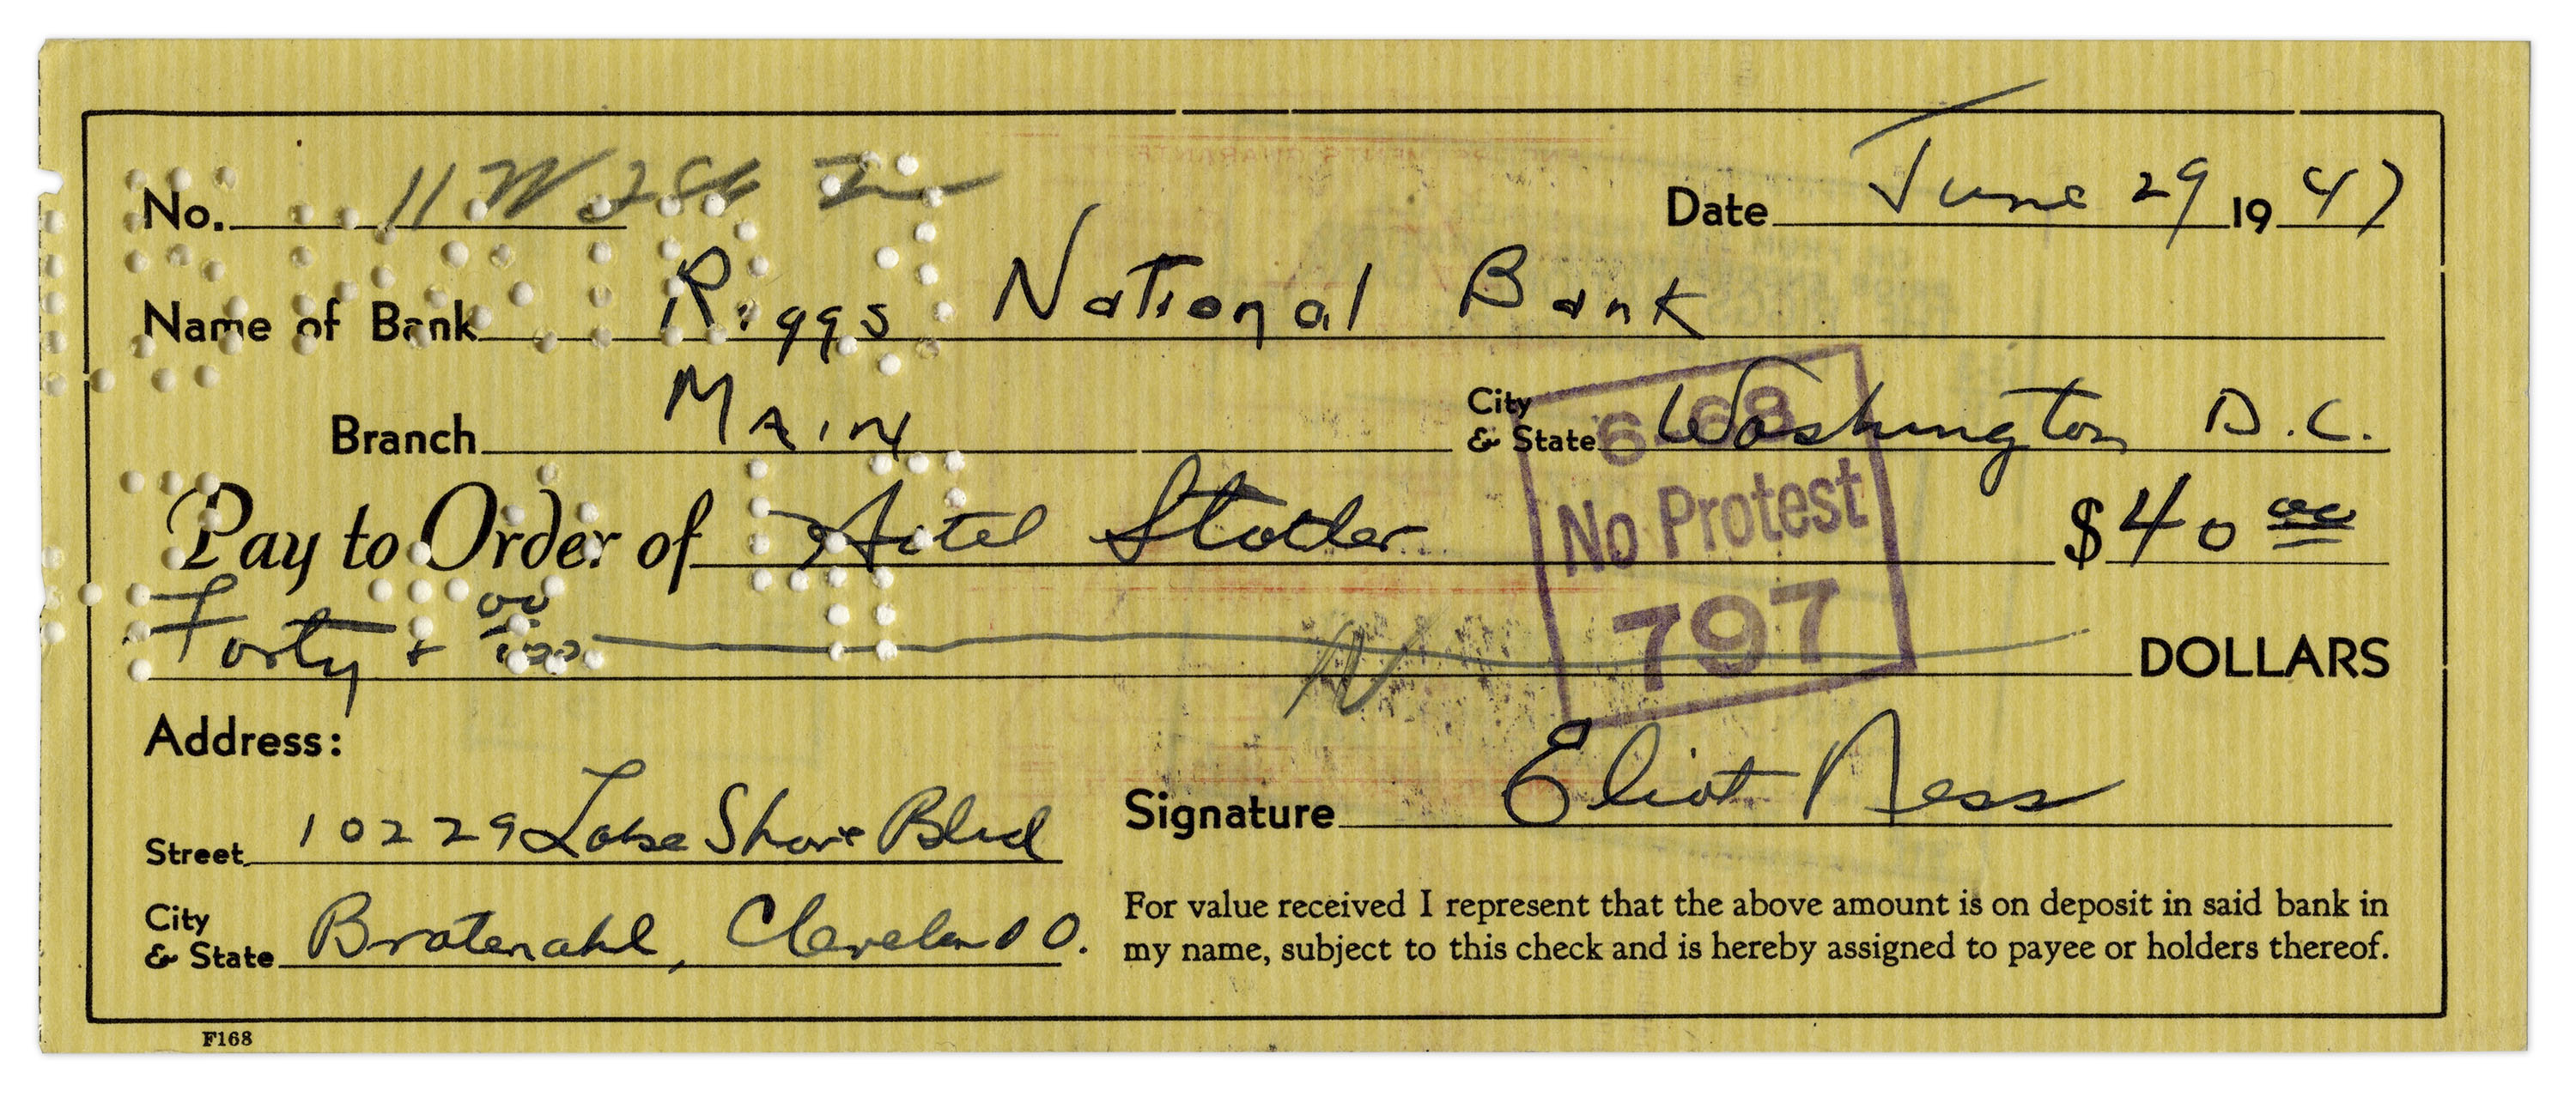 No. 11 W
Date June 29 1947
Name of Bank Riggs National Bank
Branch MAIN
City & State Washington D.C.
6-68
No Protest
797
Pay to Order of Hotel Statler $40 00
Forty + 00/100 DOLLARS
Address:
Street 10229 Lake Shore Blvd
City & State Bratenahl, Cleveland O.
Signature Eliot Ness
For value received I represent that the above amount is on deposit in said bank in
my name, subject to this check and is hereby assigned to payee or holders thereof.
F168